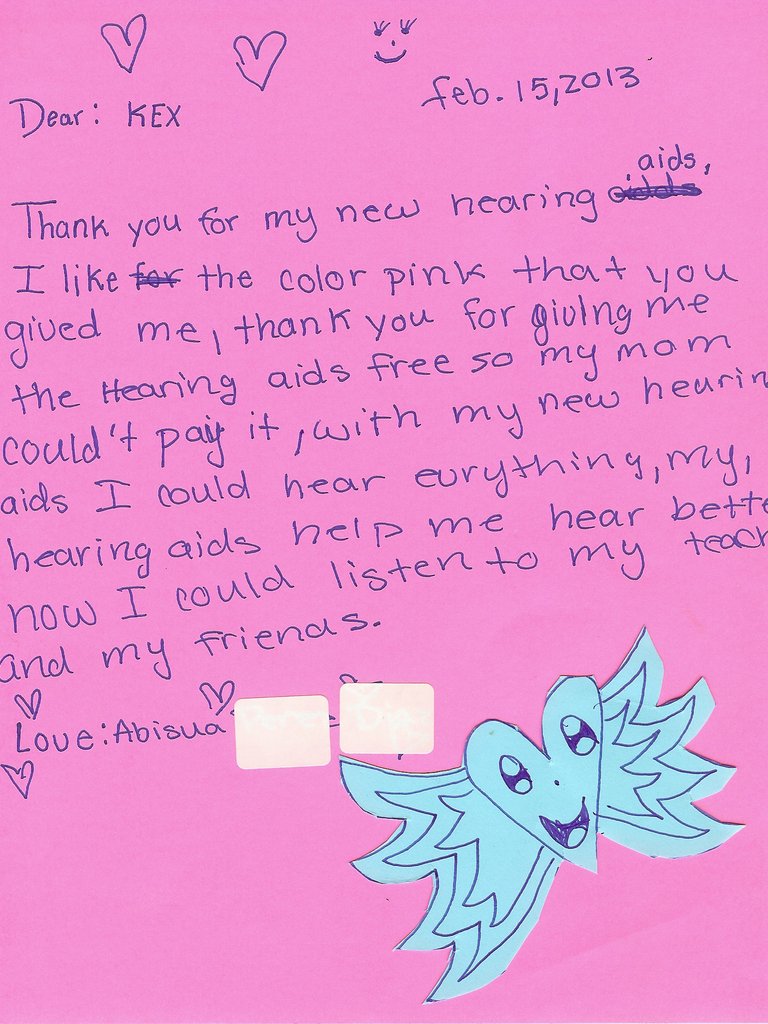 feb. 15, 2013
Dear: KEX
aids,
Thank you for my new hearing
I like for the color pink that you
gived me, thank you for giving me
the Hearing aids free so my mom
could't pay it, with my new hearin
aids I could hear eurything, my,
hearing aids help me hear bette
now I could listen to my teach
and my friends.
Love: Abisua